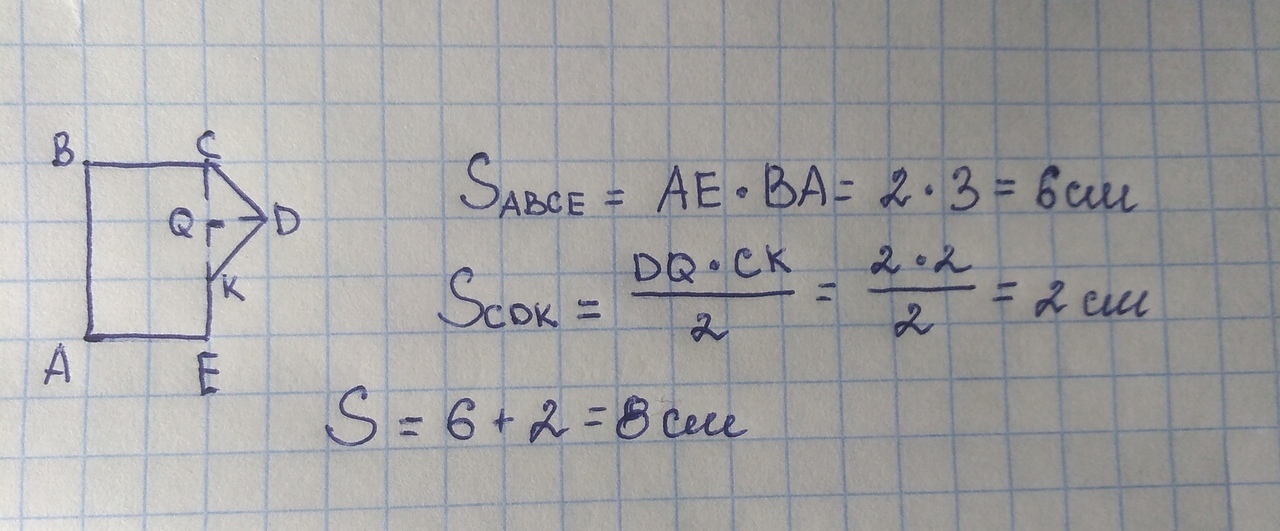 B C
Q D
K
A E
S_ABCE = AE · BA = 2 · 3 = 6 см
S_CDK = (DQ · CK)/2 = (2 · 2)/2 = 2 см
S = 6 + 2 = 8 см